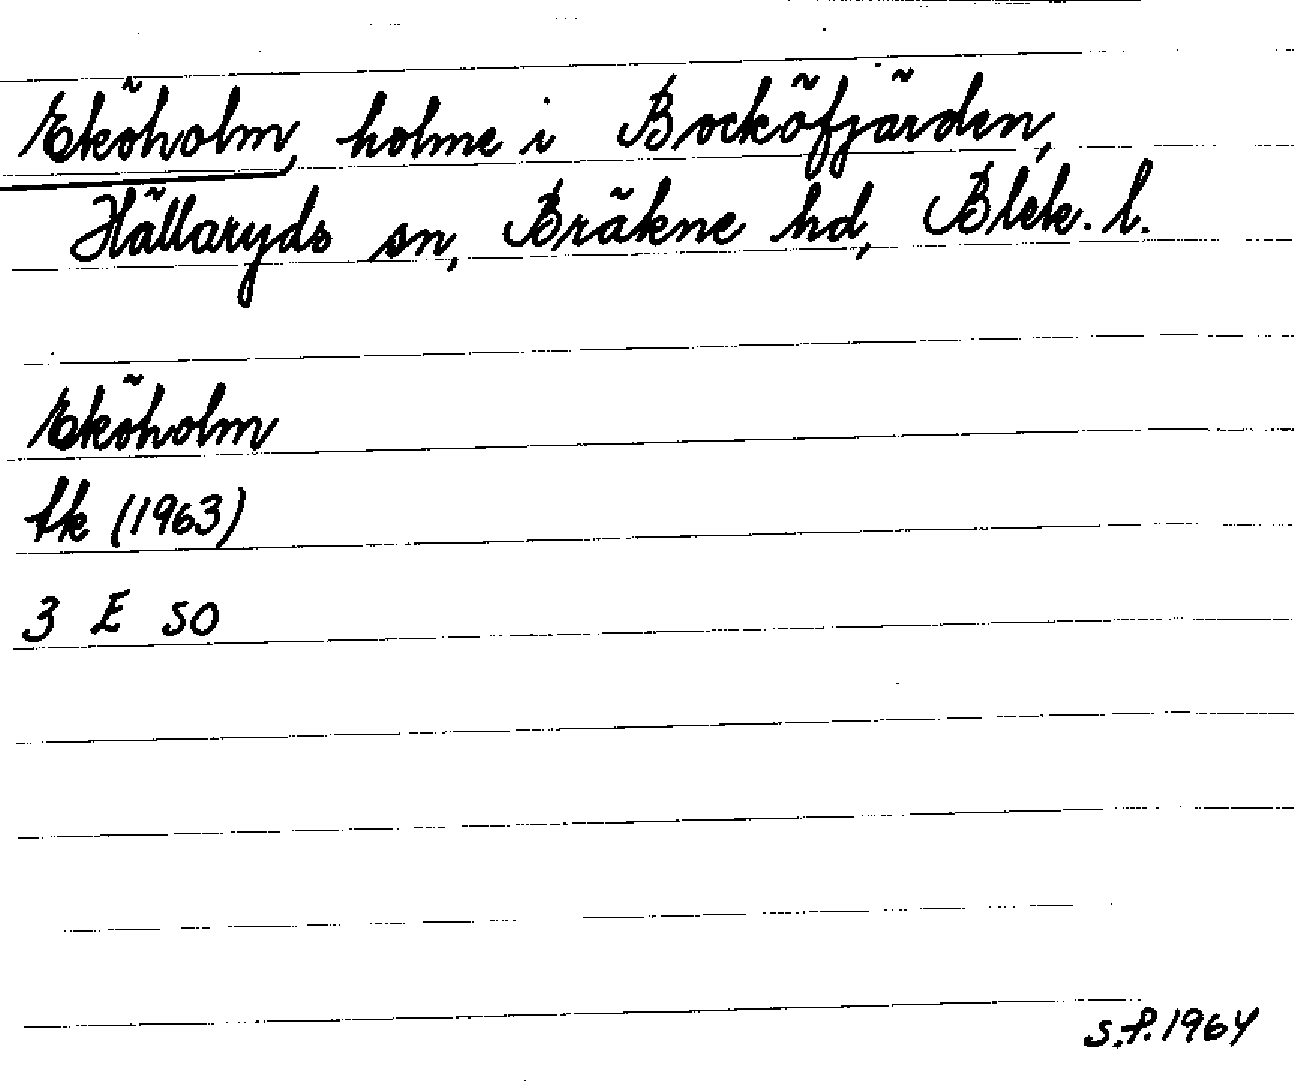 Eköholm, holme i Bocköfjärden,
Hällaryds sn, Bräkne hd, Blek. l.
Eköholm
tk (1963)
3 E SO
S.P. 1964